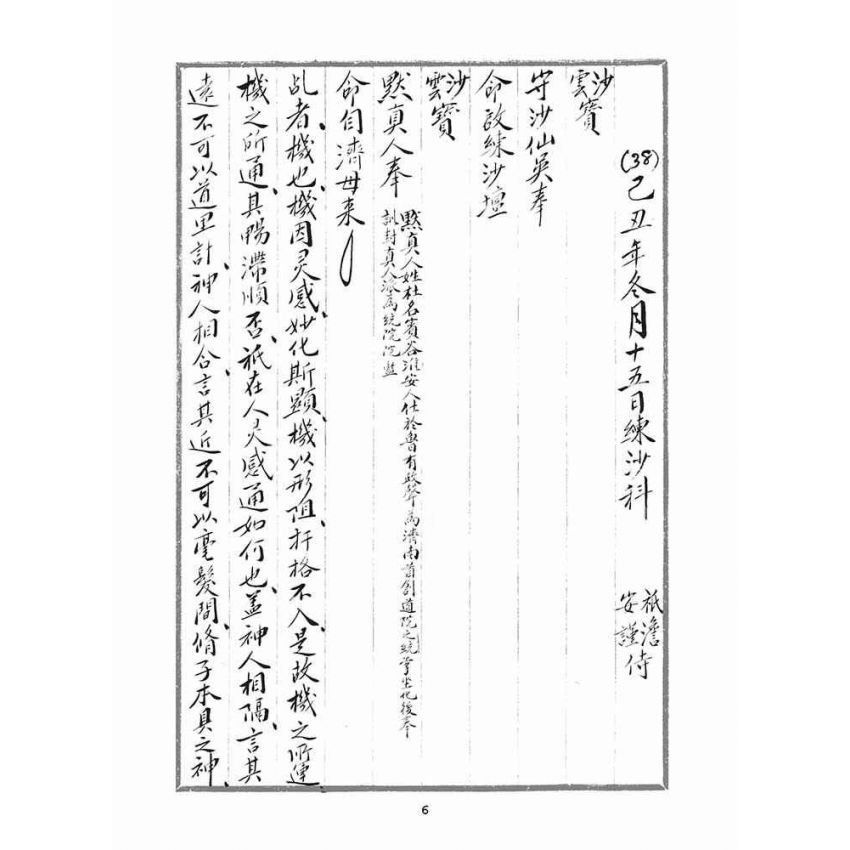 (38)己丑年冬月十五日練沙科
祇澹
安謹侍
沙
雲寶
守沙仙吳奉
命啟練沙壇
沙
雲寶
默真人奉
默真人姓杜名賓谷淮安人仕於魯有政聲為濟南首創道院之統掌坐化後奉
訊封真人派為統院沉監
命自濟母来
乩者機也機因灵感妙化斯顯機以形阻扞格不入是故機之所運
機之所通其暢滯順否祇在人灵感通如何也蓋神人相隔言其
遠不可以道里計神人相合言其近不可以毫髮間脩子本具之神
6